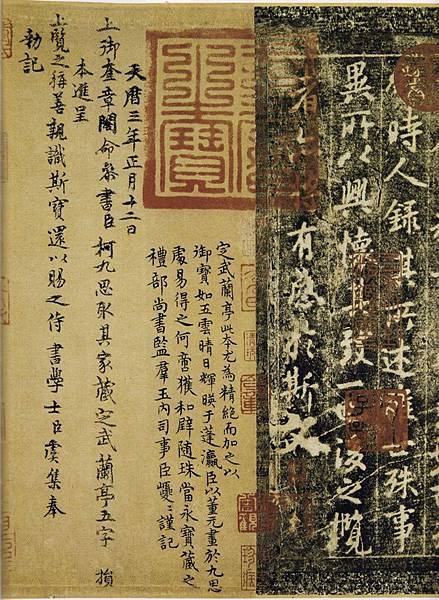 時人錄其所述雖世殊事
異所以興懷其致一也後之攬
者亦將有感於斯文
定武蘭亭此本尤為精絕而加之以
御寶如五雲晴日輝暎于蓬瀛臣以董元畫於九思
處易得之何啻獲和璧隨珠當永寶藏之
禮部尚書監羣玉內司事臣巙〻謹記
天曆三年正月十二日
上御奎章閣命參書臣柯九思取其家藏定武蘭亭五字損
本進呈
上覽之稱善親識斯寶還以賜之侍書學士臣虞集奉
勑記